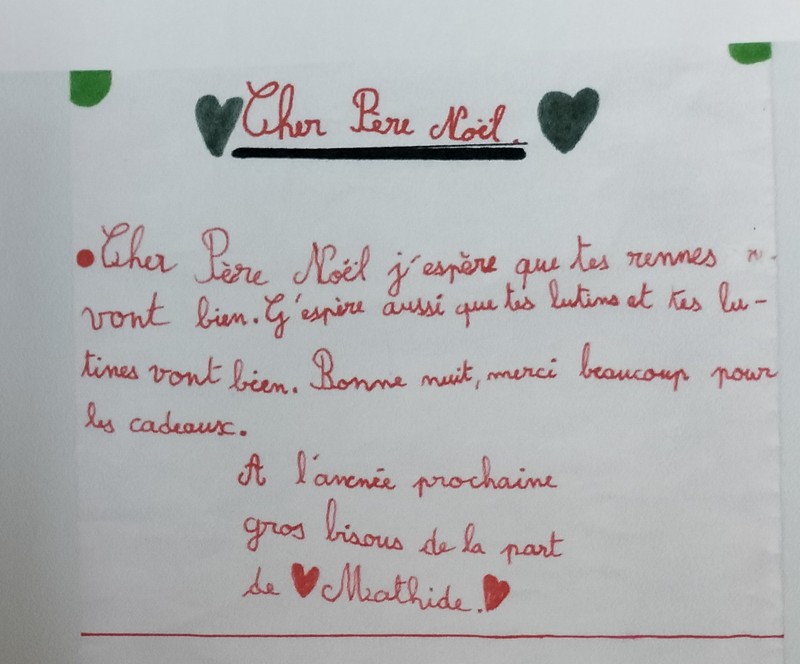 Cher Père Noël.
Cher Père Noël j'espère que tes rennes
vont bien. G'espère aussi que tes lutins et tes lu-
tines vont bien. Bonne nuit, merci beaucoup pour
les cadeaux.
A l'année prochaine
gros bisous de la part
de Mathide.